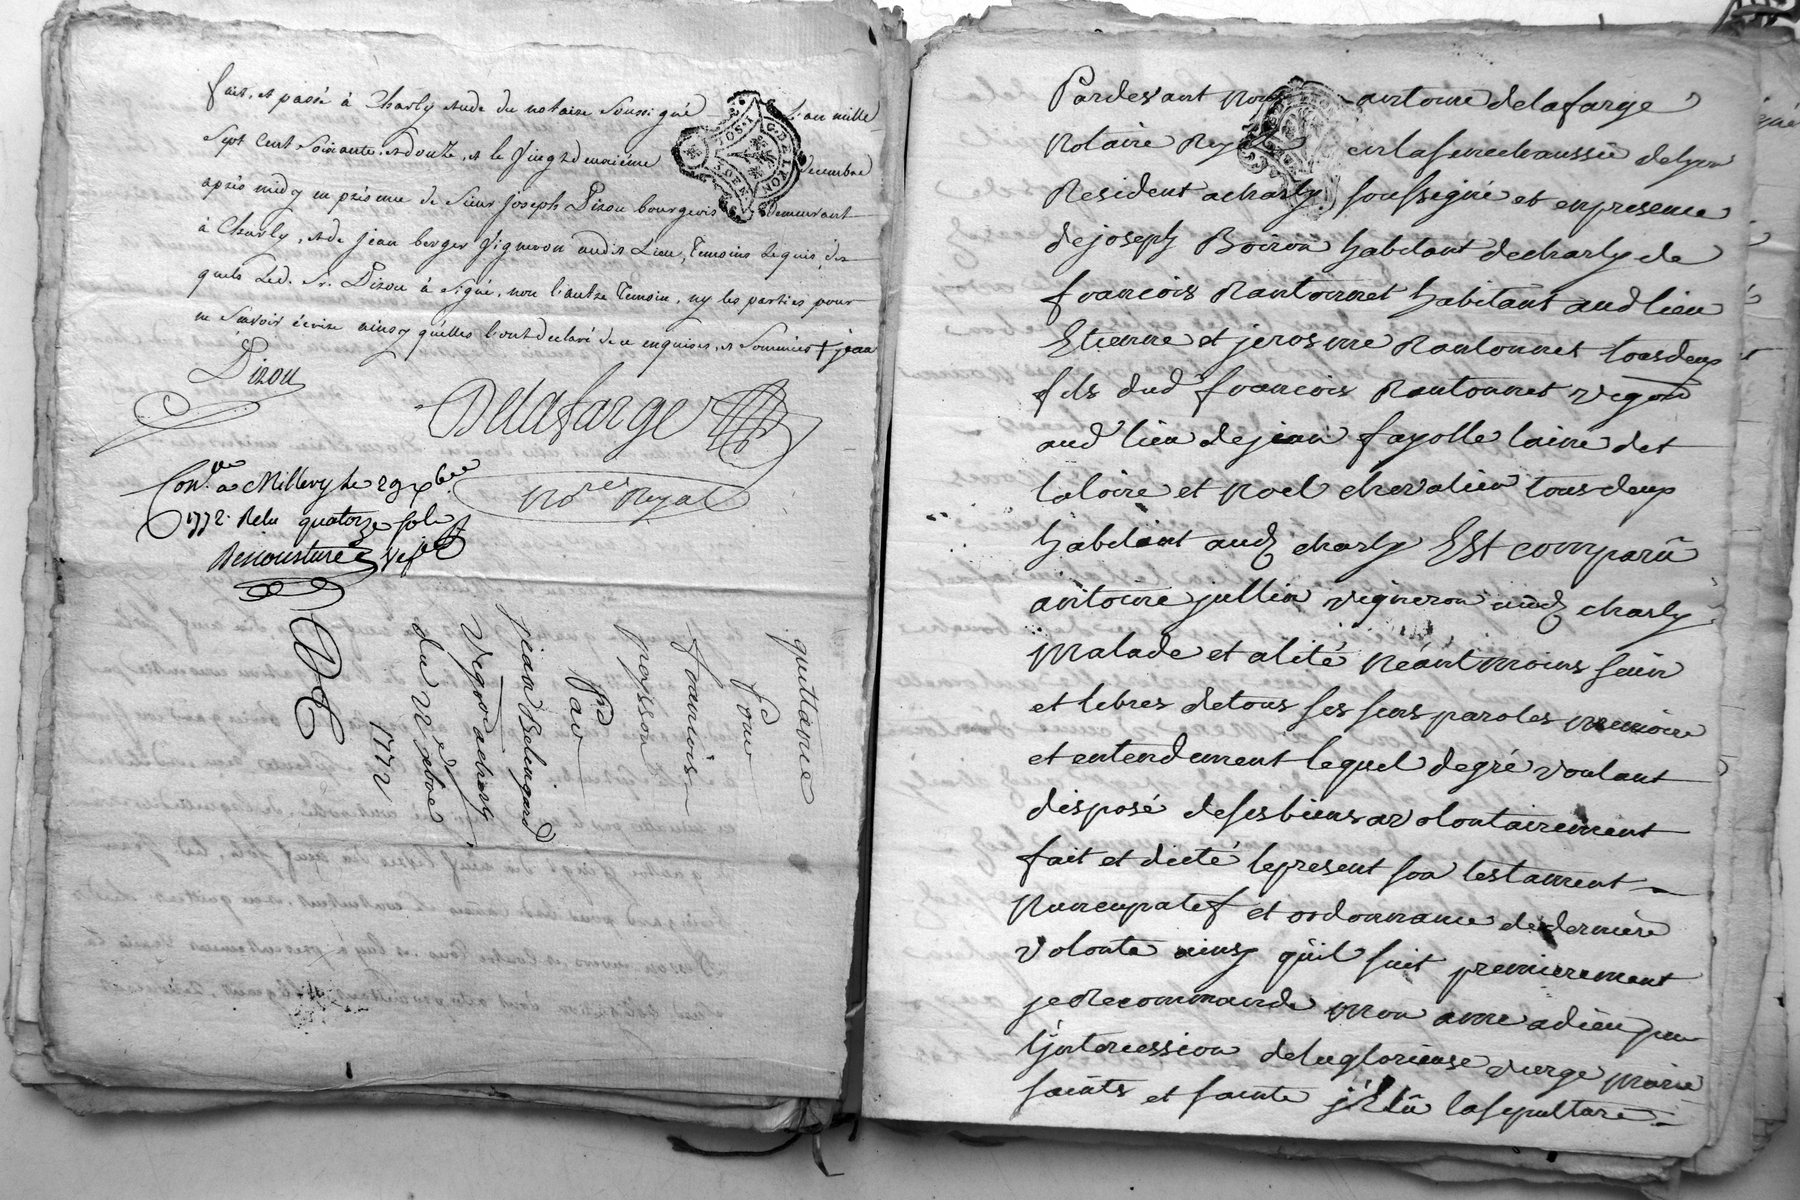 fait, et passé à Charly etude du notaire soussigné L'an mille
sept cent soixante, et douze, et le vingt deuxieme decembre
après midy en présence de sieur Joseph Dizou bourgeois demeurant
à Charly, et de jean berger vigneron audit Lieu, temoins requis, des
quels Led. Sr. Dizou à signé, non l'autre temoin, ny les parties pour
ne savoir écrire ainsy qu'elles l'ont declaré de ce enquises, et sommées + jean
Dizou
Delafarge
nore Royal
Con.lle a Millery le 29 xbre
1772. Relu quatorze sols
quittance
pour
francois
poysson
Par
jean Belingard
Vigron acharly
du 22e xbre
1772
Pardevant Nous antoine delafarge
Notaire Royal en la senechaussée delyon
Resident acharly soussigné et enpresence
dejoseph Boiron habitant decharly de
francois Rantonnet habitant audlieu
Etienne et jerosme Rantonnet tousdeux
fils dud francois Rantonnet vigon
aud lieu dejean fayolle laine det
laloire et Noel chevalier tousdeux
habitant aud charly Est comparû
antoine jullien vigneron aud charly
Malade et alité Néantmoins sain
et lebres detous ses sens paroles memoire
et entendement lequel degré voulant
disposé desesbiens avolontairement
fait et dicté lepresent son testament
Nuncupatef et ordonnance dederniere
volonte ainsy qûil suit premierement
jeRecommande mon ame adieu par
l'jntercession delaglorieuse vierge marie
saints et sainte j'élû lasepulture